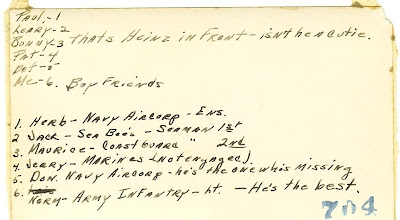 Paul,-1
Leary-2
Bonny-3 Thats Heinz in Front - isn't he a cutie.
Pat-4
Dot-5
Me-6. Boy Friends
1. Herb - Navy Aircorp - Ens.
2 Jack - Sea Bee's - Seaman 1st
3. Maurice - Coast Guard " 2nd
4. Jerry - Marines (not engaged).
5. Don. Navy Aircorp - he's the one who is missing
6. Norm - Army Infantry - Lt. - He's the best.
704